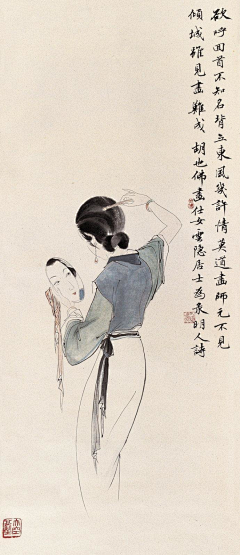 欲呼回首不知名背立東風幾許情莫道畫師元不見
傾城雖見畫難成 胡也佛畫仕女雲隐居士為彔明人詩